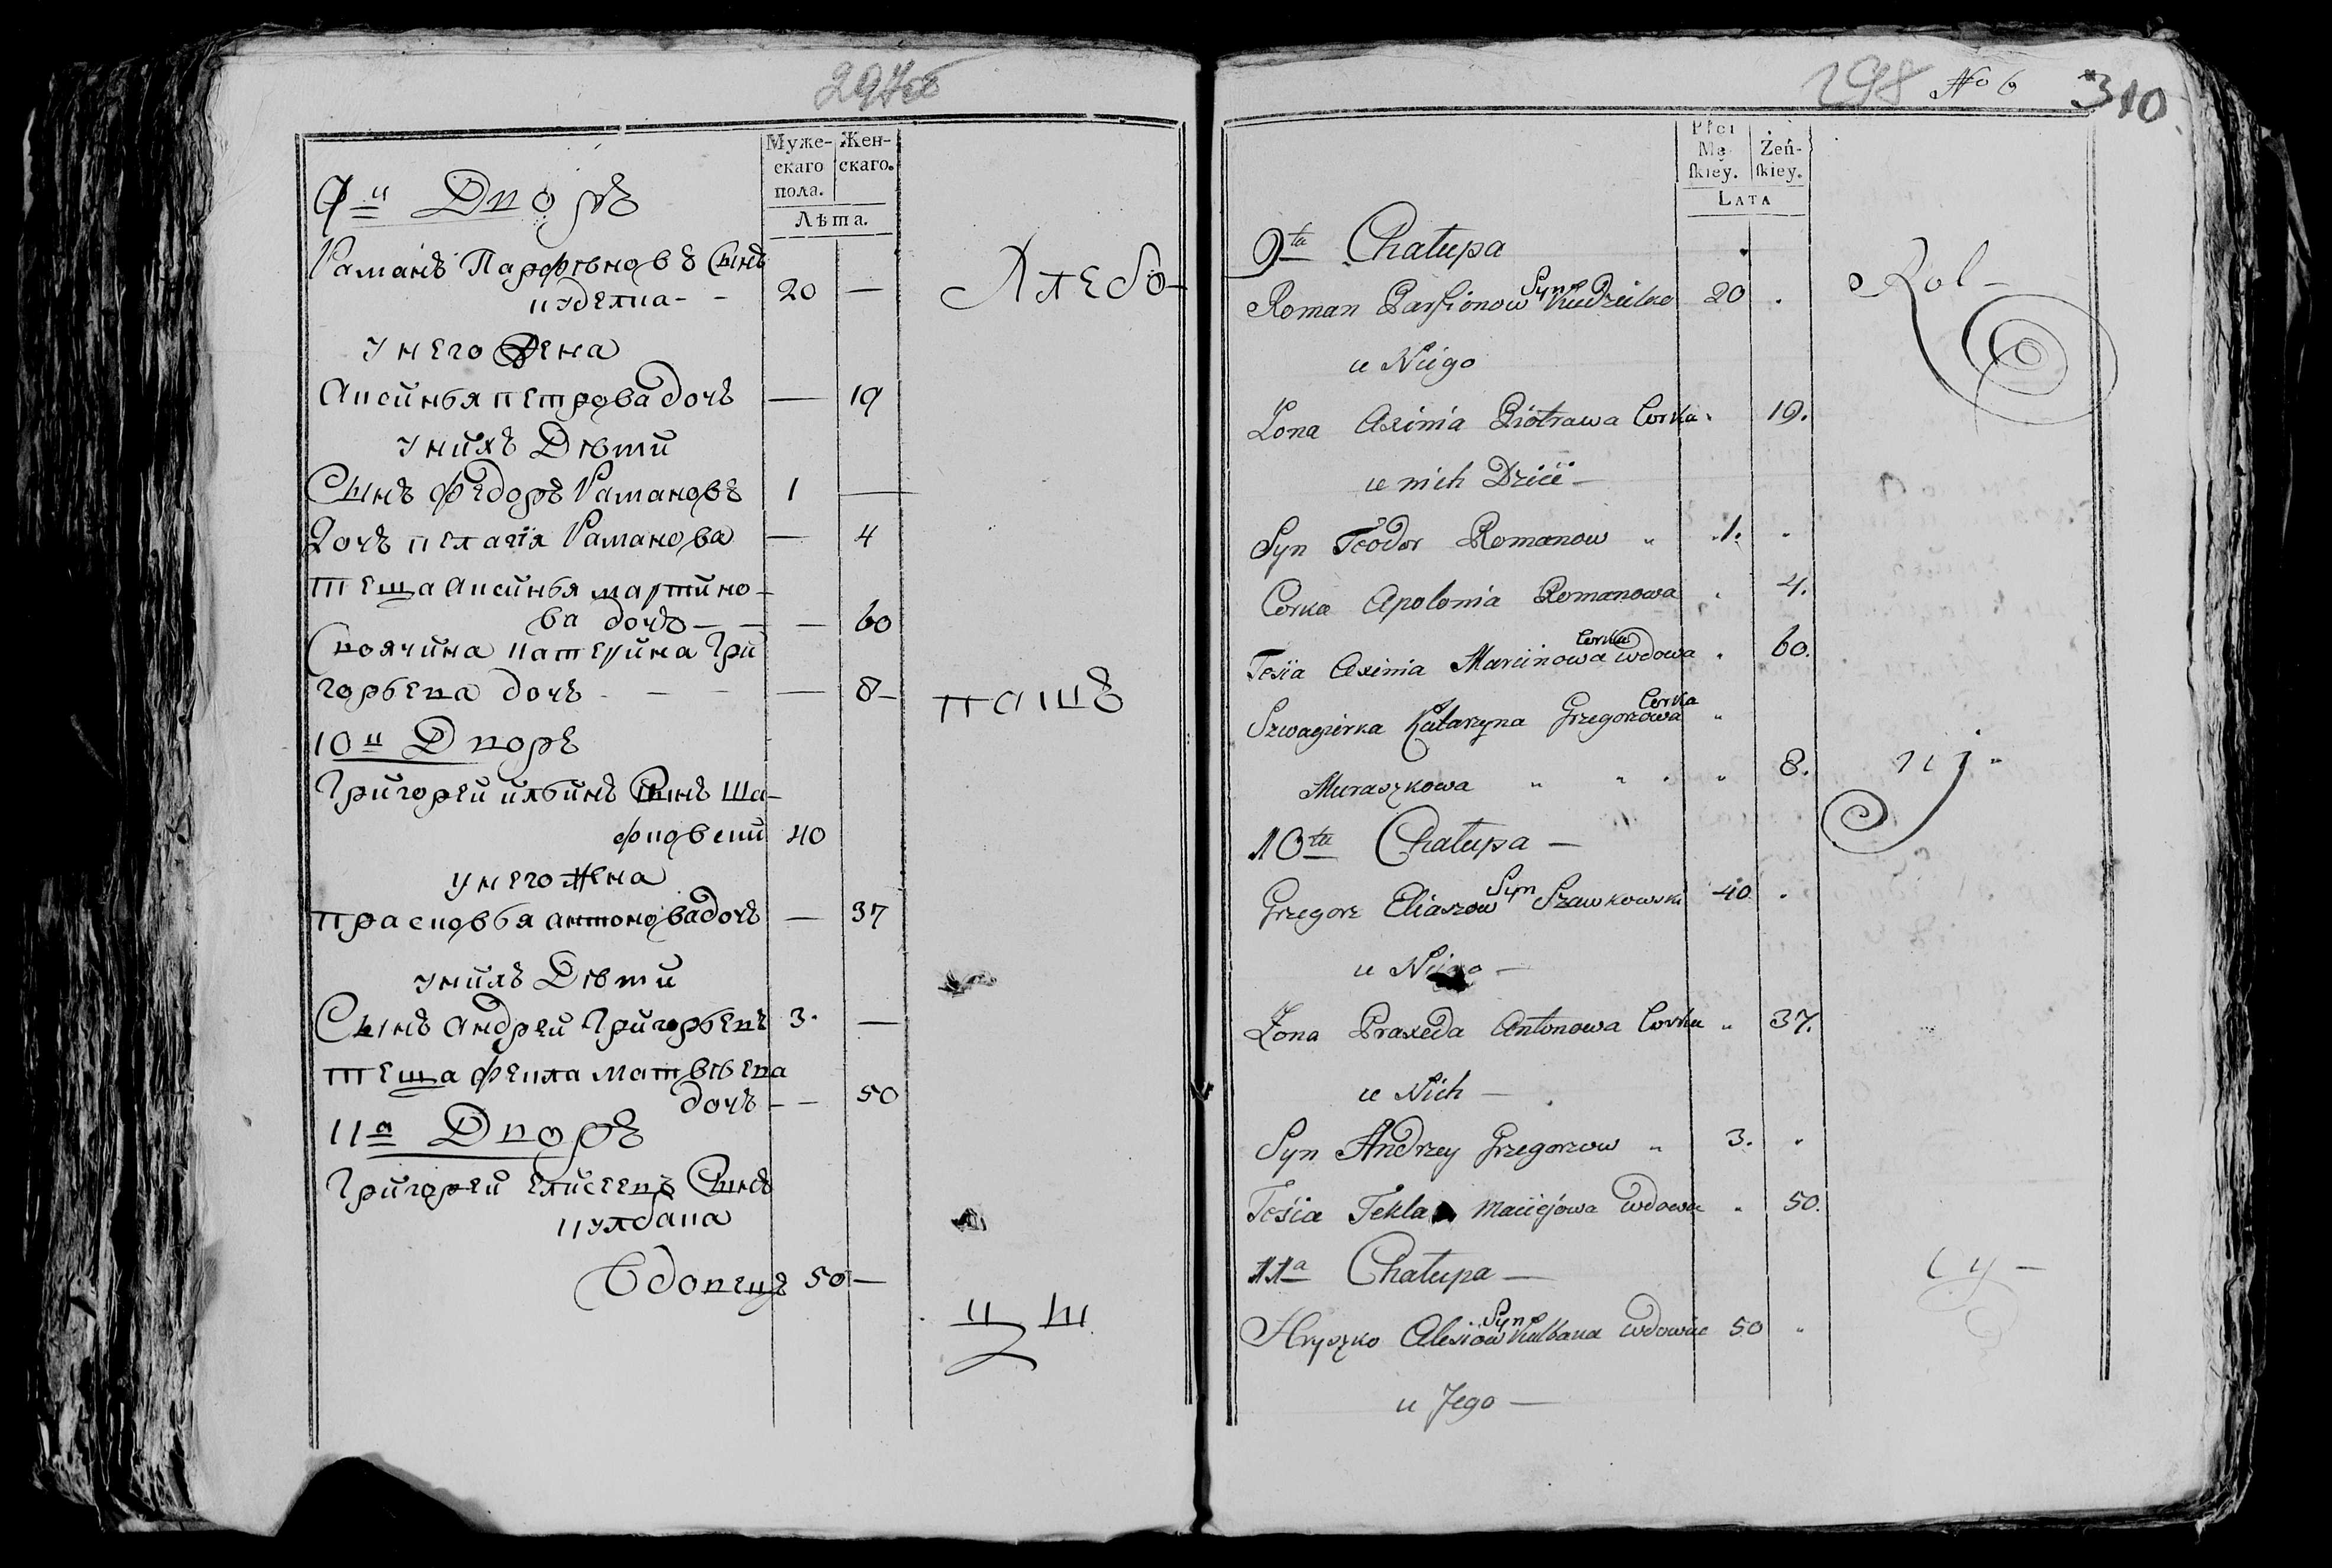 297об
Муже-
скаго
пола.
Жен-
скаго.
Лѣта.
9й Дворъ
Раманъ Парфѣновъ Сынъ
куделка - - 20 —
Хлебо-
у него Жена
Аксинья петрова дочъ — 19
у нихъ Дѣти
Сынъ федоръ Рамановъ 1 —
Дочъ пелагiя Раманова — 4
теща Аксинья мартино-
ва дочъ — — — 60
Своячина катерина Гри
горьева дочъ - — — — 8 —
пашъ
10й Дворъ
Григорей ильинъ Сынъ Ша-
фковски 40
у него Жена
прасковья антонова дочъ — 37
у нихъ Дѣти
Сынъ андрей Григорьевъ 3. —
теща фекла матвѣева
дочъ - — 50
11й Дворъ
Григорей елисеевъ Сынъ
кулбака
Вдовецъ 50 —
ц ш
298 No 6 310
Płci
Mę
skiey.
Żeń-
skiey.
LATA
9ta Chałupa
Roman Parfionow Syn Kudzielko 20 .
Rol-
u Niego
Żona Axinia Piotrawa Corka . 19.
u nich Dzieci —
Syn Teodor Romanow „ .1. „
Corka Apolonia Romanowa . 4.
Teścia Axinia Marcinowa Corka wdowa . 60.
Szwagierka Katarzyna Grzegorzowa Corka „
Muraszkowa „ „ . „ 8.
nij.
10ta Chałupa —
Grzegorz Eliaszow Syn Szawkowski 40 .
u Niego —
Żona Praxeda Antonowa Corka „ 37.
u Nich —
Syn Andrzey Grzegorzow „ 3. „
Teścia Tekla Maciejówa wdowa „ 50.
11a Chałupa —
Hryszko Alesiow Syn Kulbaka wdowiec 50 „
cy —
u Jego —